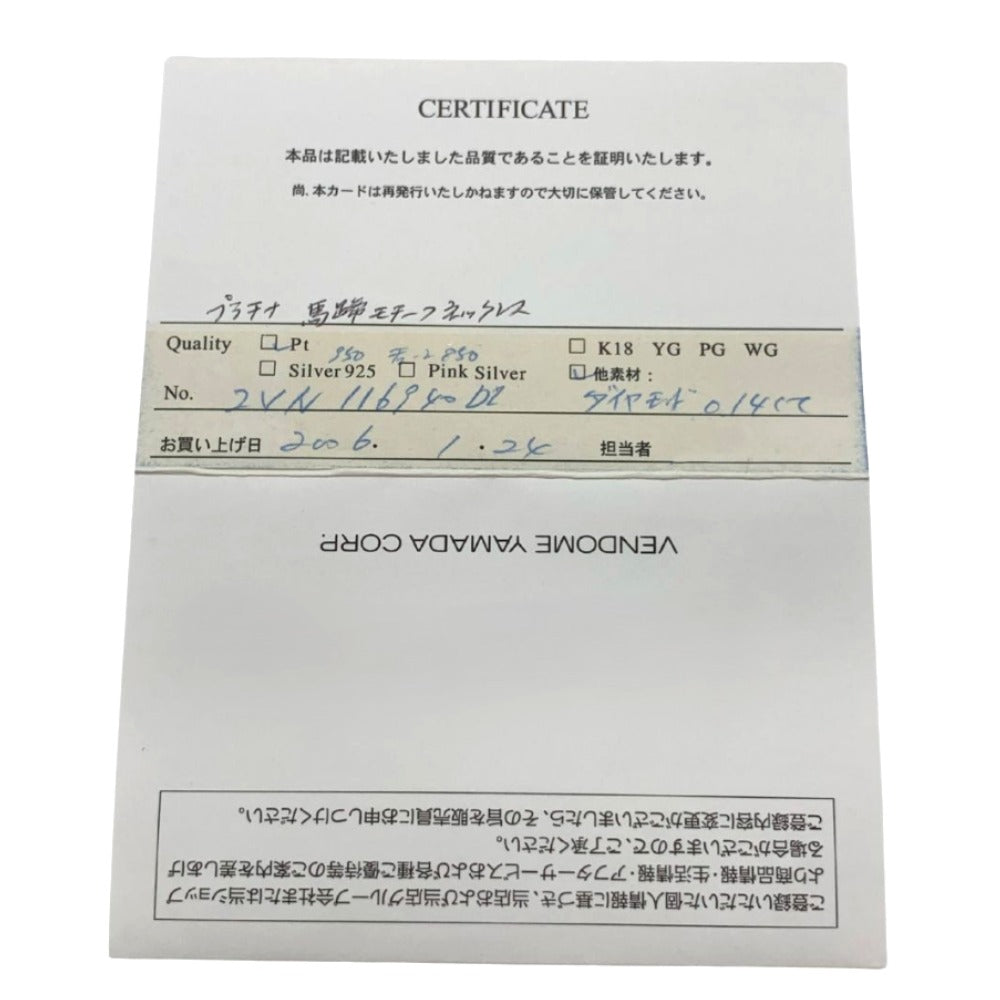 CERTIFICATE
本品は記載いたしました品質であることを証明いたします。
尚、本カードは再発行いたしかねますので大切に保管してください。
プラチナ 馬蹄モチーフネックレス
Quality □ Pt □ K18 YG PG WG
950 チェーン850
□ Silver925 □ Pink Silver □ 他素材：
No. 2VN 116940 DI ダイヤモンド 0.14ct
お買い上げ日 2006. 1. 24 担当者
VENDOME YAMADA CORP.
ご登録いただいた個人情報に基づき、当店および当店グループ会社または当ショップ
より商品情報・生活情報・アフターサービスおよび各種ご優待等のご案内を差しあげ
る場合がございますので、ご了承ください。
ご登録内容に変更がございましたら、その旨を販売員にお申しつけください。